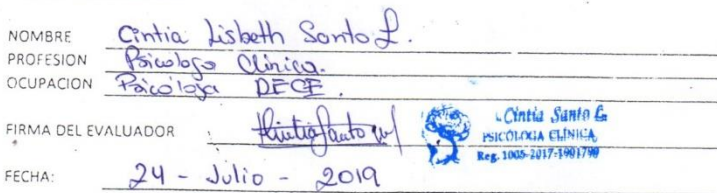 NOMBRE Cintia Lisbeth Santo L.
PROFESION Psicologo Clinico.
OCUPACION Psicóloga DECE.
FIRMA DEL EVALUADOR :
Cintia Santo L.
PSICÓLOGA CLÍNICA
Reg. 1005-2017-1901790
FECHA: 24 - Julio - 2019